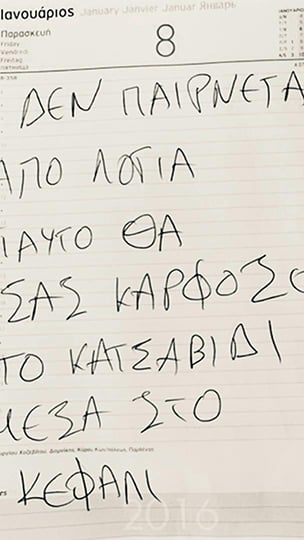 Ιανουάριος January Janvier Januar Январь
Παρασκευή
Friday
Vendredi
Freitag
8
ΔΕΝ ΠΑΙΡΝΕΤΑ
ΑΠΟ ΛΟΓΙΑ
ΙΑΥΤΟ ΘΑ
ΣΑΣ ΚΑΡΦΟΣΩ
ΤΟ ΚΑΤΣΑΒΙΔΙ
ΜΕΣΑ ΣΤΟ
ΚΕΦΑΛΙ
2016